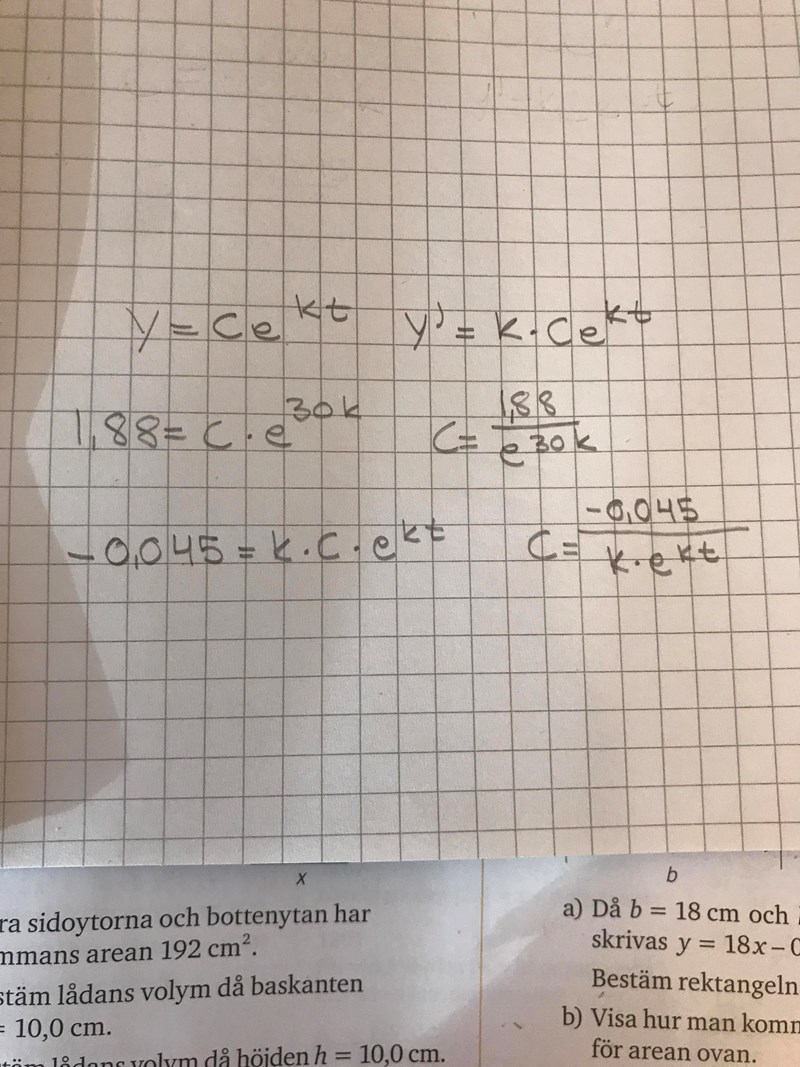 y = Ce^{kt} y' = k · Ce^{kt}
1,88 = C · e^{30k} C = \frac{1,88}{e^{30k}}
-0,045 = k · C · e^{kt} C = \frac{-0,045}{k · e^{kt}}
x
sidoytorna och bottenytan har
arean 192 cm².
lådans volym då baskanten
= 10,0 cm.
lådans volym då höjden h = 10,0 cm.
b
a) Då b = 18 cm och
skrivas y = 18x –
Bestäm
b) Visa hur man
för arean ovan.